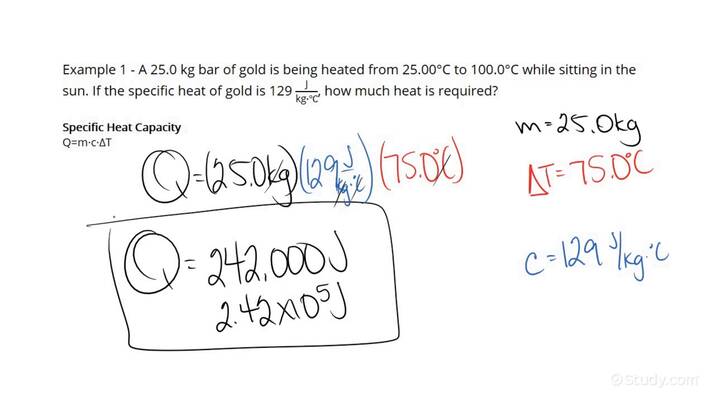 Example 1 - A 25.0 kg bar of gold is being heated from 25.00°C to 100.0°C while sitting in the
sun. If the specific heat of gold is 129 J/kg·°C, how much heat is required?
Specific Heat Capacity
Q=m·c·ΔT
Q=(25.0kg)(129 J/kg·°C)(75.0°C)
Q=242,000J
2.42×10⁵J
m=25.0kg
ΔT=75.0°C
c=129 J/kg·°C
©Study.com